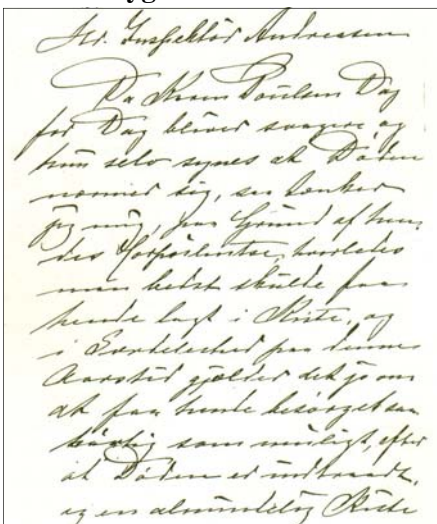 Hr. Inspektör Andressen
Da Karen Poulsen Dag
for Dag bliver svagere og
hun selv synes at Döden
nærmer sig, saa tænker
jeg mig, paa Grund af hen-
des Korpulentse, hvorledes
man bedst skulde faa
hende lagt i Kiste, og
i Særdeleshed paa denne
Aarstid gjælder det jo om
at faa hende besörget saa
hurtig som muligt, efter
at Döden er indtraadt,
og en almindelig Kiste